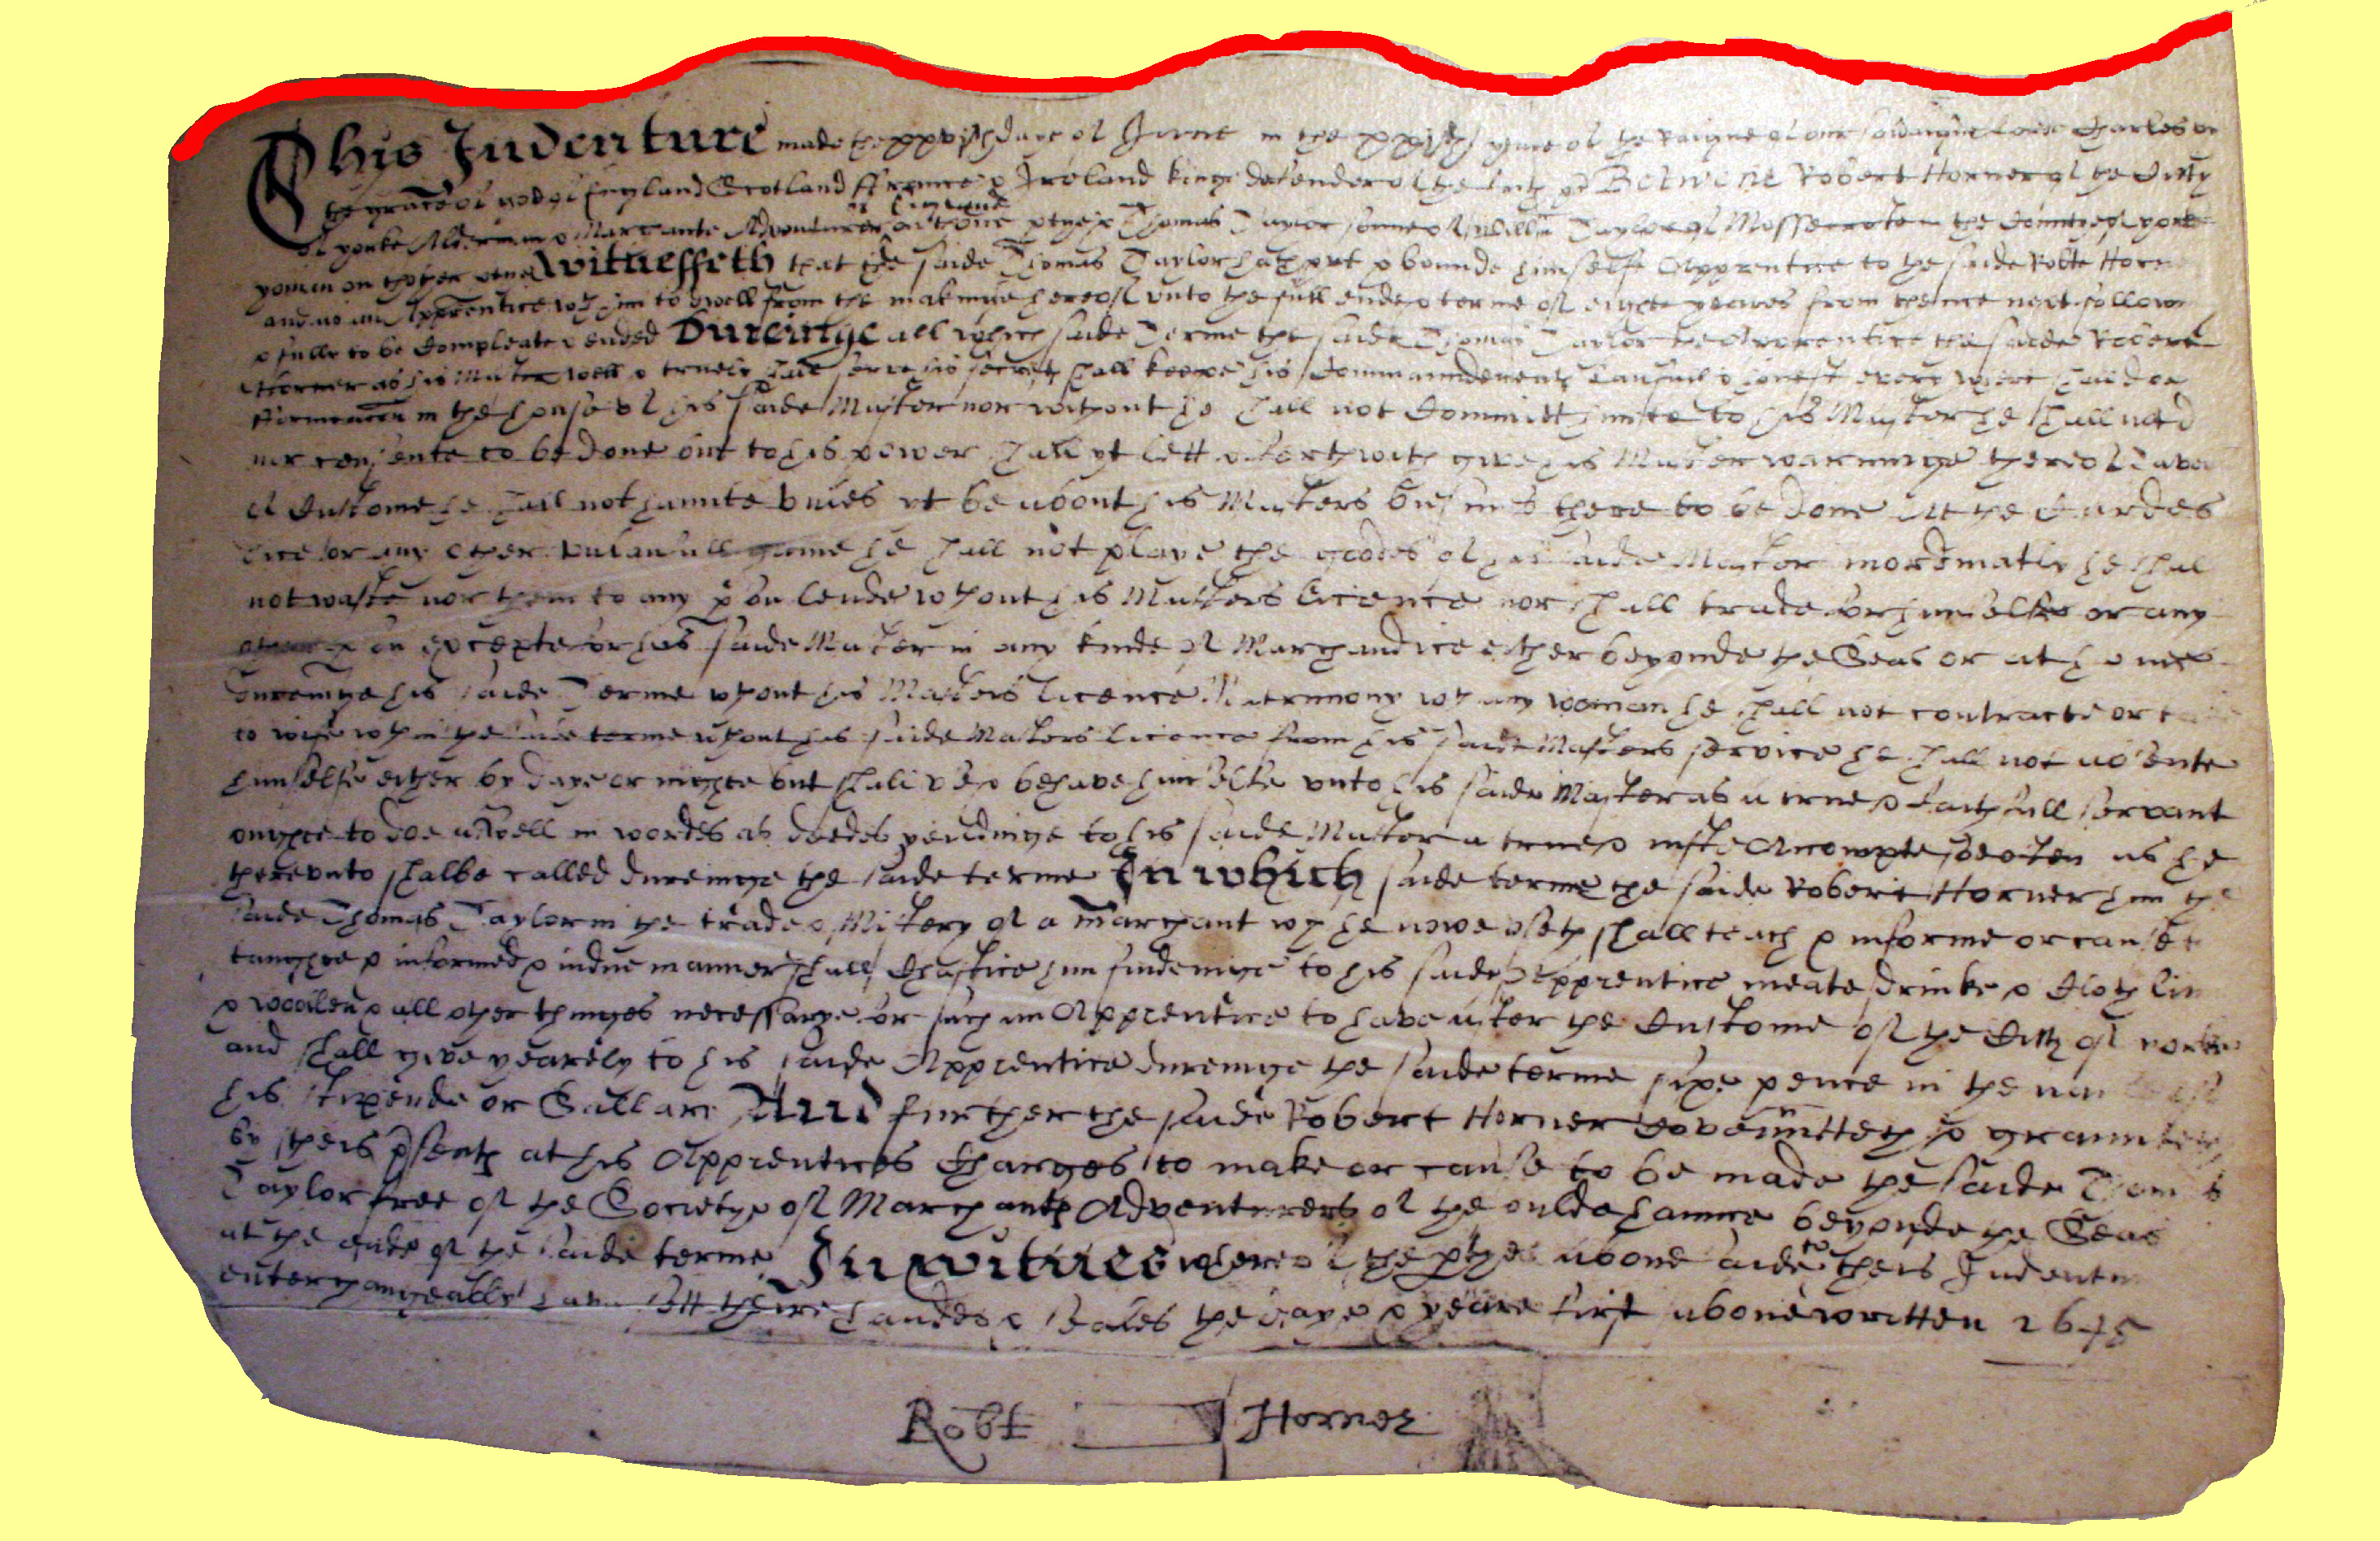 This Indenture made the xxvijth daye of June in the xxjth yeare of the Raigne of our soveraigne Lord Charles by
the grace of god of England Scotland ffrance & Ireland kinge defender of the faith &c Betwene Robert Horner of the Citty
of England
of yorke Alderman & Marchante Adventurer on thone ptye & Thomas Taylor sonne of Willm Taylor of the Countye of yorke
yoman on thother ptye Witnesseth that the saide Thomas Taylor hath put & bounde himselfe Apprentice to the saide Robte Horn
and as an Apprentice wth him to dwell from the makinge hereof unto the full ende & terme of eighte yeares from thence next followinge
& fully to be Compleate & ended Dureinge all which saide Terme the saide Thomas Taylor the Apprentice the saide Robert
Horner as his Maister well & truely shall serve his secrets shall keepe his Commaundements Lawfull & honest every where shall doe
in the house of his saide Maister nor without he shall not Committ to his Maister he shall not
nor consente to be done but to his power shall yt lett & forthwith give his Maister warninge thereof
of Custome he shall not haunte unles yt be about his Maisters busines there to be done Att the Cardes
dice or any other unlawfull game he shall not playe the goodes of his saide Maister inordinatly he shall
not waste nor them to any pson lende wthout his Maisters licence nor shall trade for himselfe or any
other pson excepte for his saide Maister in any kinde of Marchandice either beyonde the Seas or at home
dureinge his saide Terme wthout his Maisters licence Matrimony wth any woman he shall not contracte or
to wife wthin the saide terme wthout his saide Maisters licence from his saide Maisters service he shall not absente
himselfe either by daye or nighte but shall use & behave himselfe unto his saide Maister as a true & faithfull servant
oughte to doe aswell in wordes as deedes yeildinge to his saide Maister a true & juste Accompte soe often as he
thereunto shalbe called dureinge the saide terme In which saide terme the saide Robert Horner him the
saide Thomas Taylor in the trade & Mistery of a marchant wch he nowe useth shall teach & informe or cause to
taughte & informed & in due manner shall Chastice him findeinge to his saide Apprentice meate drinke & Cloth lin
& woollen & all other thinges necessarye for such an Apprentice to have after the Custome of the Citty of yorke
and shall give yearely to his saide Apprentice dureinge the saide terme sixe pence in the name of
his stipende or Sallare And further the saide Robert Horner Covennitteth & graunteth
by theis psents at his Apprentices Charges to make or cause to be made the saide Thomas
Taylor free of the Societye of Marchants Adventurers of the oulde hannce beyonde the Seas
at the ende of the saide terme In witnes whereof the ptyes above saide to theis Indentures
enterchangeably have sett theire handes & seales the daye & yeare first above written 1645
Robt Horner